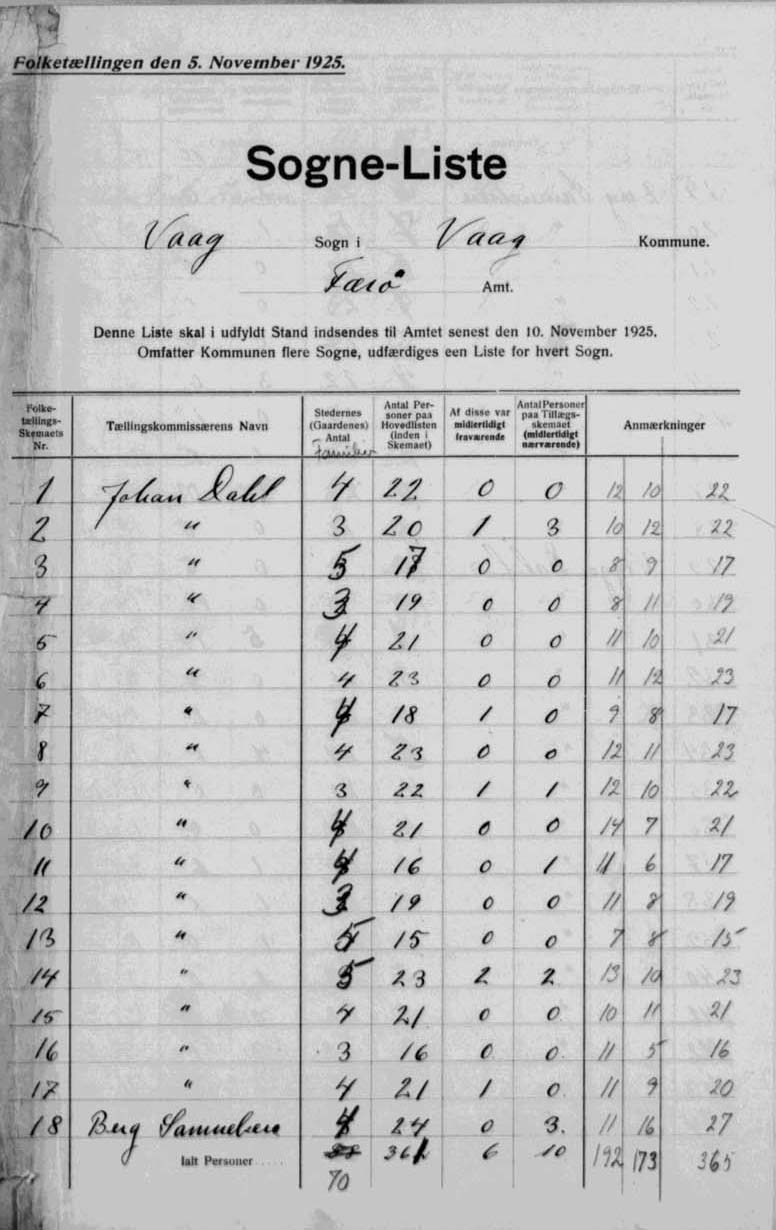 Folketællingen den 5. November 1925.
Sogne-Liste
Vaag Sogn i Vaag Kommune.
Færø Amt.
Denne Liste skal i udfyldt Stand indsendes til Amtet senest den 10. November 1925.
Omfatter Kommunen flere Sogne, udfærdiges een Liste for hvert Sogn.
Folketællings-Skemaets Nr. Tællingskommissærens Navn Stedernes (Gaardenes) Antal Familier Antal Personer paa Hovedlisten (inden i Skemaet) Af disse var midlertidigt fraværende Antal Personer paa Tillægsskemaet (midlertidigt nærværende) Anmærkninger
1 Johan Dahl 4 22 0 0 12 10 22
2 " 3 20 1 3 10 12 22
3 " 5 17 0 0 8 9 17
4 " 3 19 0 0 8 11 19
5 " 4 21 0 0 11 10 21
6 " 4 23 0 0 11 12 23
7 " 4 18 1 0 9 8 17
8 " 4 23 0 0 12 11 23
9 " 3 22 1 1 12 10 22
10 " 4 21 0 0 14 7 21
11 " 4 16 0 1 11 6 17
12 " 3 19 0 0 11 8 19
13 " 5 15 0 0 7 8 15
14 " 5 23 2 2 13 10 23
15 " 4 21 0 0 10 11 21
16 " 3 16 0 0 11 5 16
17 " 4 21 1 0 11 9 20
18 Berg Samuelsen 4 24 0 3 11 16 27
Ialt Personer 361 6 10 192 173 365
70